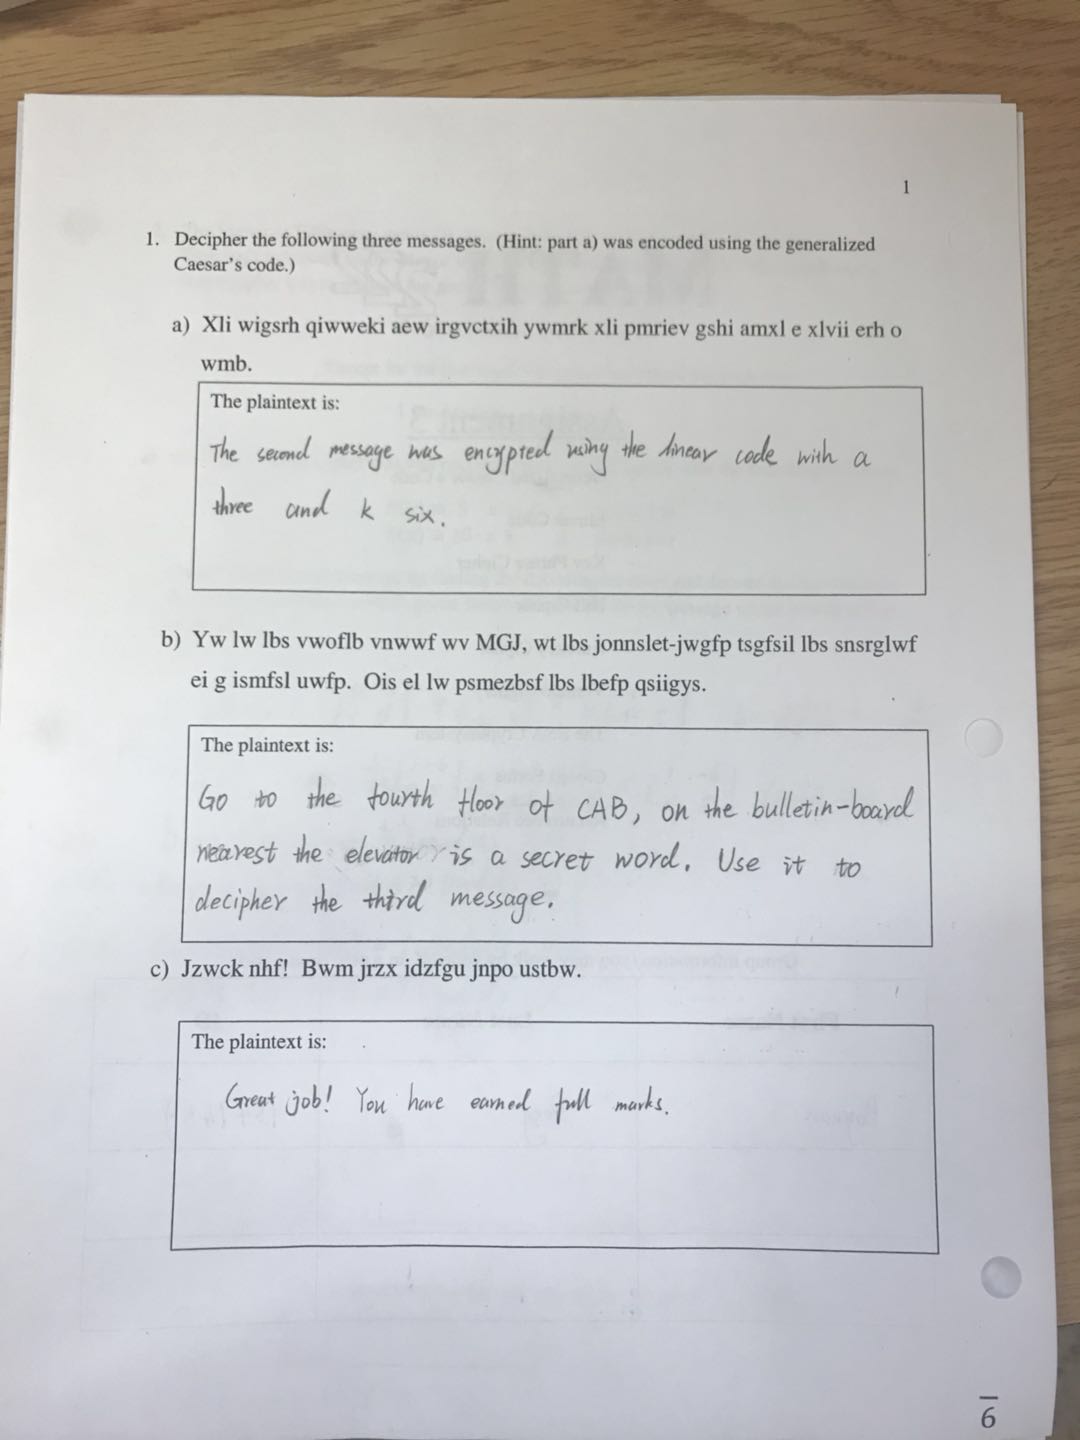 1
1. Decipher the following three messages. (Hint: part a) was encoded using the generalized
Caesar's code.)
a) Xli wigsrh qiwweki aew irgvctxih ywmrk xli pmriev gshi amxl e xlvii erh o
wmb.
The plaintext is:
The second message was encrypted using the linear code with a
three and k six.
b) Yw lw lbs vwoflb vnwwf wv MGJ, wt lbs jonnslet-jwgfp tsgfsil lbs snsrglwf
ei g ismfsl uwfp. Ois el lw psmezbsf lbs lbefp qsiigys.
The plaintext is:
Go to the fourth floor of CAB, on the bulletin-board
nearest the elevator is a secret word. Use it to
decipher the third message.
c) Jzwck nhf! Bwm jrzx idzfgu jnpo ustbw.
The plaintext is:
Great job! You have earned full marks.
6